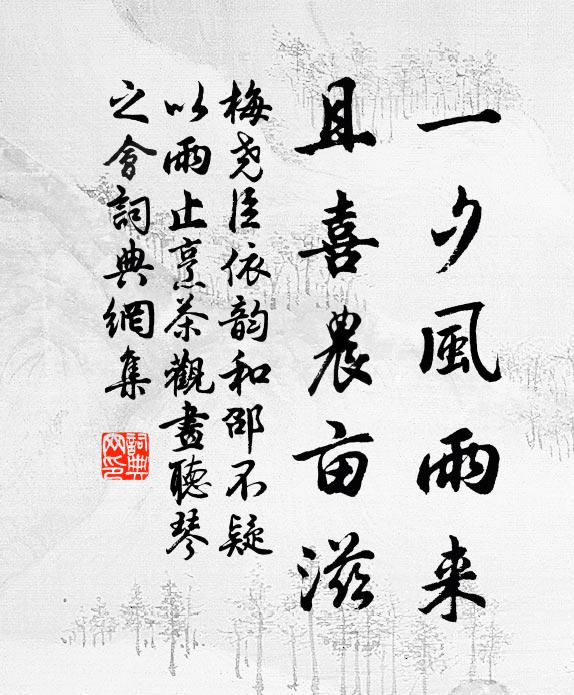 一夕風雨来
且喜農亩滋
梅尧臣依韵和邵不疑
以雨止烹茶觀畫聽琴
之會詞典網集
詞典网印